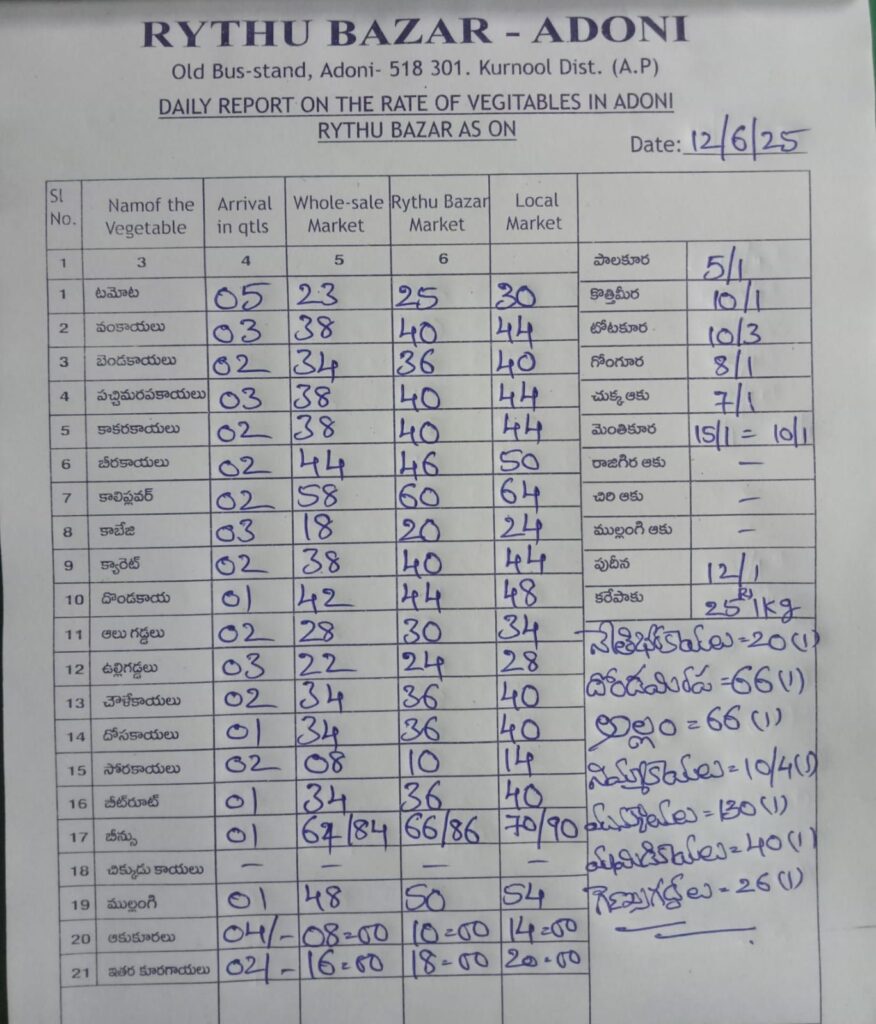 RYTHU BAZAR - ADONI
Old Bus-stand, Adoni- 518 301. Kurnool Dist. (A.P)
DAILY REPORT ON THE RATE OF VEGITABLES IN ADONI
RYTHU BAZAR AS ON
Date: 12/6/25
Sl No. Namof the Vegetable Arrival in qtls Whole-sale Market Rythu Bazar Market Local Market
1 3 4 5 6
1 టమోట 05 23 25 30
2 వంకాయలు 03 38 40 44
3 బెండకాయలు 02 34 36 40
4 పచ్చిమిరపకాయలు 03 38 40 44
5 కాకరకాయలు 02 38 40 44
6 బీరకాయలు 02 44 46 50
7 కాలిఫ్లవర్ 02 58 60 64
8 కాబేజి 03 18 20 24
9 క్యారెట్ 02 38 40 44
10 దొండకాయ 01 42 44 48
11 ఆలు గడ్డలు 02 28 30 34
12 ఉల్లిగడ్డలు 03 22 24 28
13 చౌళేకాయలు 02 34 36 40
14 దోసకాయలు 01 34 36 40
15 సోరకాయలు 02 08 10 14
16 బీట్‌రూట్ 01 34 36 40
17 బీన్సు 01 /84 66/86 70/90
18 చిక్కుడు కాయలు — — — —
19 ముల్లంగి 01 48 50 54
20 ఆకుకూరలు 04/- 08=00 10=00 14=00
21 ఇతర కూరగాయలు 02/- 16=00 18=00 20=00
పాలకూర 5/1
కొత్తిమీర 10/1
టోటకూర 10/3
గోంగూర 8/1
చుక్క ఆకు 7/1
మెంతికూర 15/1 = 10/1
రాజగిర ఆకు —
చిరి ఆకు —
ముల్లంగి ఆకు —
పుదీన 12/1
కరేపాకు 25 1kg
= 20 (1)
= 66 (1)
అల్లం = 66 (1)
నిమ్మకాయలు = 10/4(1)
= 130 (1)
మామిడికాయలు = 40 (1)
= 26 (1)